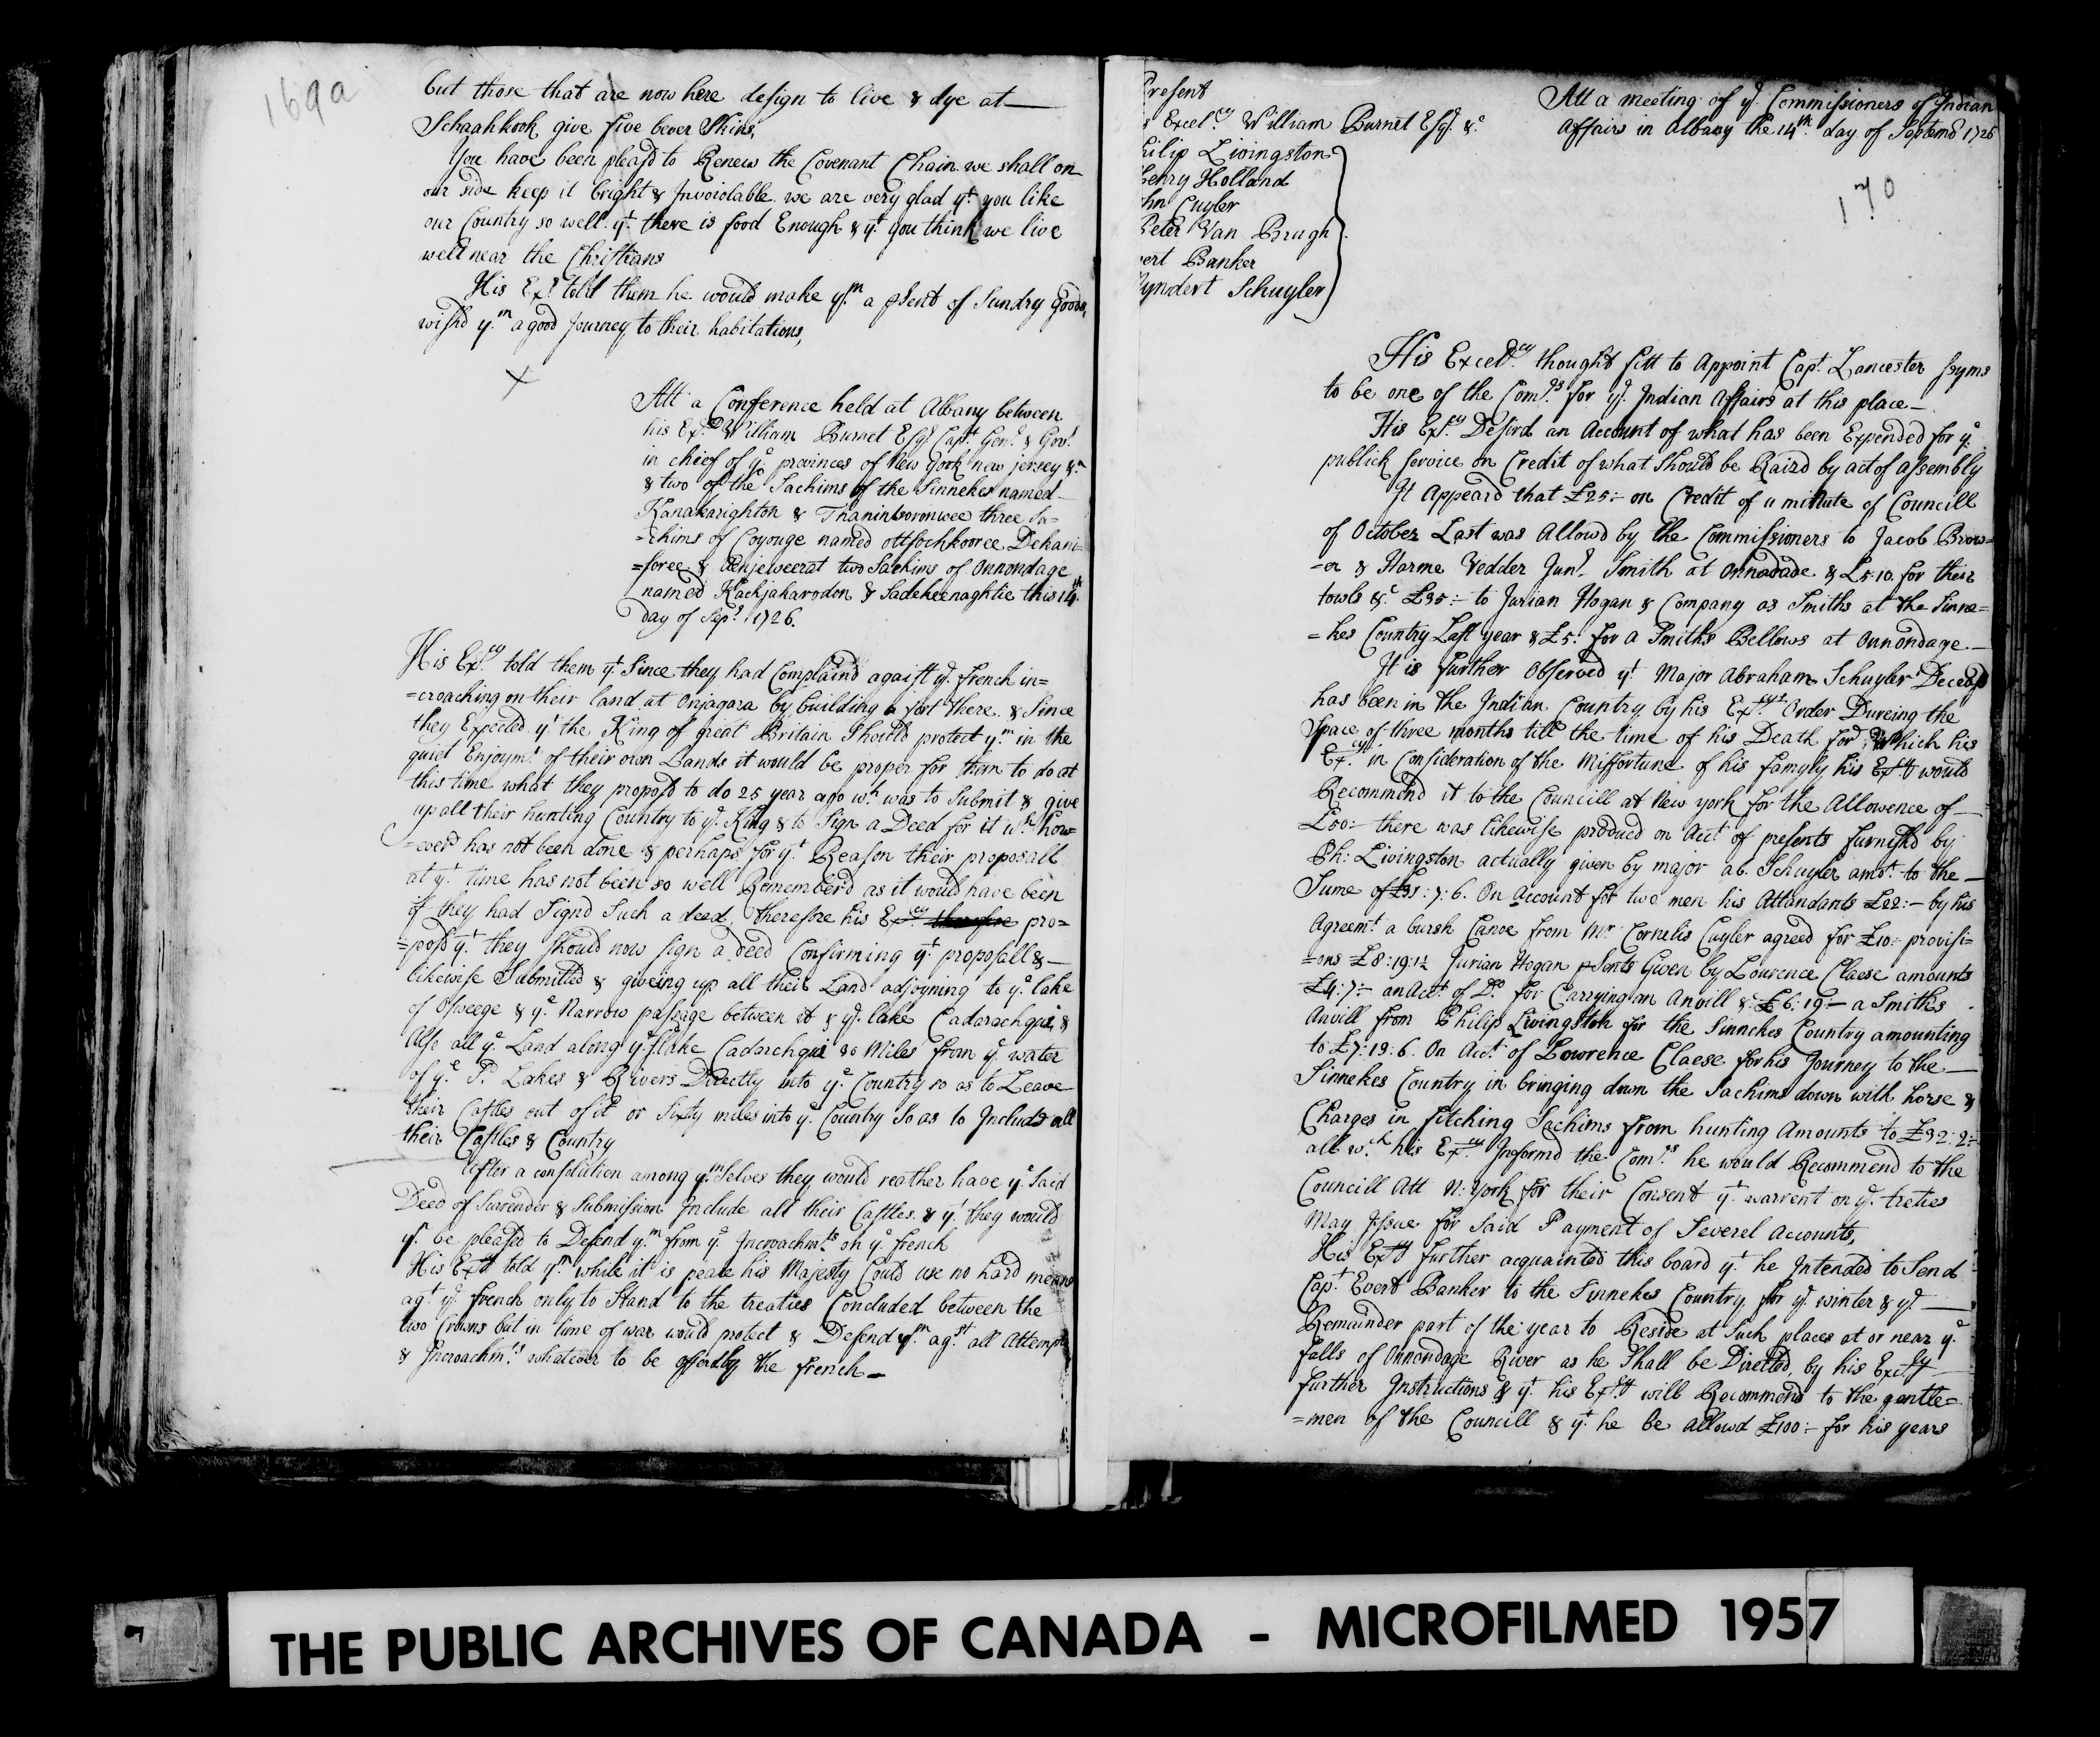 169a
but those that are now here design to live & dye at—
Schaahkook give five bever Skins,
You have been pleasd to Renew the Covenant Chain we shall on
our side keep it bright & Invoiolable we are very glad yt you like
our Country so well yt there is food Enough & yt you think we live
well near the Christians
His Excy told them he would make ym a psent of Sundry goods,
wishd ym a good Journey to their habitations,
Att a Conference held at Albany between
his Excy William Burnet Esqr Capt Genl & Govr
in chief of ye provinces of New York new jersey &c
& two of the Sachims of the Sinnekes named
Kanakarighton & Thanintsoronwee three Sa=
=chims of Coyouge named ottsochkooree Dekani=
=soree & Aenjeweerat two Sachims of Onnondage
named Kachjakarodon & Sadekeenaghtie this 14th
day of Sepr 1726.
His Excy told them yt Since they had Complaind agaist ye french in=
=croaching on their land at Onjagara by building a fort there & Since
they Expected yt the King of great Britain Should protect ym in the
quiet Enjoymt of their own Lands it would be proper for them to do at
this time what they proposd to do 25 year ago wh was to Submit & give
up all their hunting Country to ye King & to Sign a Deed for it wh how=
=ever has not been done & perhaps for yt Reason their proposall
at yt time has not been so well Rememberd as it would have been
if they had Signd Such a deed, therefore his Excy therefore pro=
=posd yt they should now sign a deed Confirming yt proposall &—
likewise Submitted & giveing up all their Land adjoyning to ye lake
of Osweege & ye Narrow passage between it & ye lake Cadarachqui, &
Also all ye Land along ye lake Cadarchqui 80 Miles from ye water
of ye Sd Lakes & Rivers Directly into ye Country so as to Leave
their Castles out of it or Sixty miles into ye Country So as to Include all
their Castles & Country
After a consolution among ym Selves they would reather have ye Said
Deed of Surrender & Submission Include all their Castles & yt they would
yt be pleased to Defend ym from ye Incroachmts on ye french
His Excy told ym while it is peace his Majesty Could use no hard means
agt ye french only to Stand to the treaties Concluded between the
two Crowns but in time of war would protect & Defend ym agst all Attempts
& Incroachmts whatever to be offerd by the french—
Present
Excelcy William Burnet Esqr &c
hilip Livingston
Henry Holland
hn Cuyler
Peter Van Brugh
vert Banker
Myndert Schuyler
Att a meeting of ye Commissioners of Indian
Affairs in Albany the 14th day of Septembr 1726
170
His Excelcy thought fitt to Appoint Capt Lancester Syms
to be one of the Comrs for ye Indian Affairs at this place—
His Excy Desird an Account of what has been Expended for ye
publick Service on Credit of what Should be Raisd by act of assembly
It Appeard that £25:- on Credit of a minute of Councill
of October Last was Allowd by the Commissioners to Jacob Brow=
=er & Harme Vedder Junr Smith at Onnadade & £5:10. for their
towls &c £35:- to Jurian Hogan & Company as Smiths at the Sinne=
=kes Country Last year & £5: for a Smiths Bellows at Onnondage—
It is further Observed yt Major Abraham Schuyler Deceasd
has been in the Indian Country by his Excys Order Dureing the
Space of three months till the time of his Death for which his
Excy in Consideration of the Missfortune of his famyly his Excy would
Recommend it to the Councill at New york for the Allowence of—
£50:- there was likewise produced on Acct of presents furnishd by
Ph: Livingston actually given by major ab. Schuyler amot to the—
Sume of £31:7:6. On Account for two men his Attandants £22:- by his
Agreemt a bursh Canoe from Mr Cornelis Cuyler agreed for £10:- provisi=
=ons £8:19:1½ Jurian Hogan psents Given by Lourence Claese amounts
£4:7:- an Acct of Do for Carrying an Anvill & £6:19— a Smiths
Anvill from Philip Livingston for the Sinnekes Country amounting
to £7:19:6. On Acct of Lowrence Claese for his Journey to the—
Sinnekes Country in bringing down the Sachims down with horse &
Charges in fitching Sachims from hunting Amounts to £32:2:-
all wch his Excy Informd the Comrs he would Recommend to the
Councill Att N: York for their Consent yt warrent on ye treties
May Issue for Said Payment of Severel Accounts,
His Excy further acquainted this board yt he Intended to Send
Capt Evert Banker to the Sinnekes Country for ye winter & ye—
Remainder part of the year to Reside at Such places at or near ye
falls of Onnondage River as he Shall be Directed by his Excy
further Instructions & yt his Excy will Recommend to the gentle=
=men of the Councill & yt he be allowd £100:- for his years
THE PUBLIC ARCHIVES OF CANADA - MICROFILMED 1957